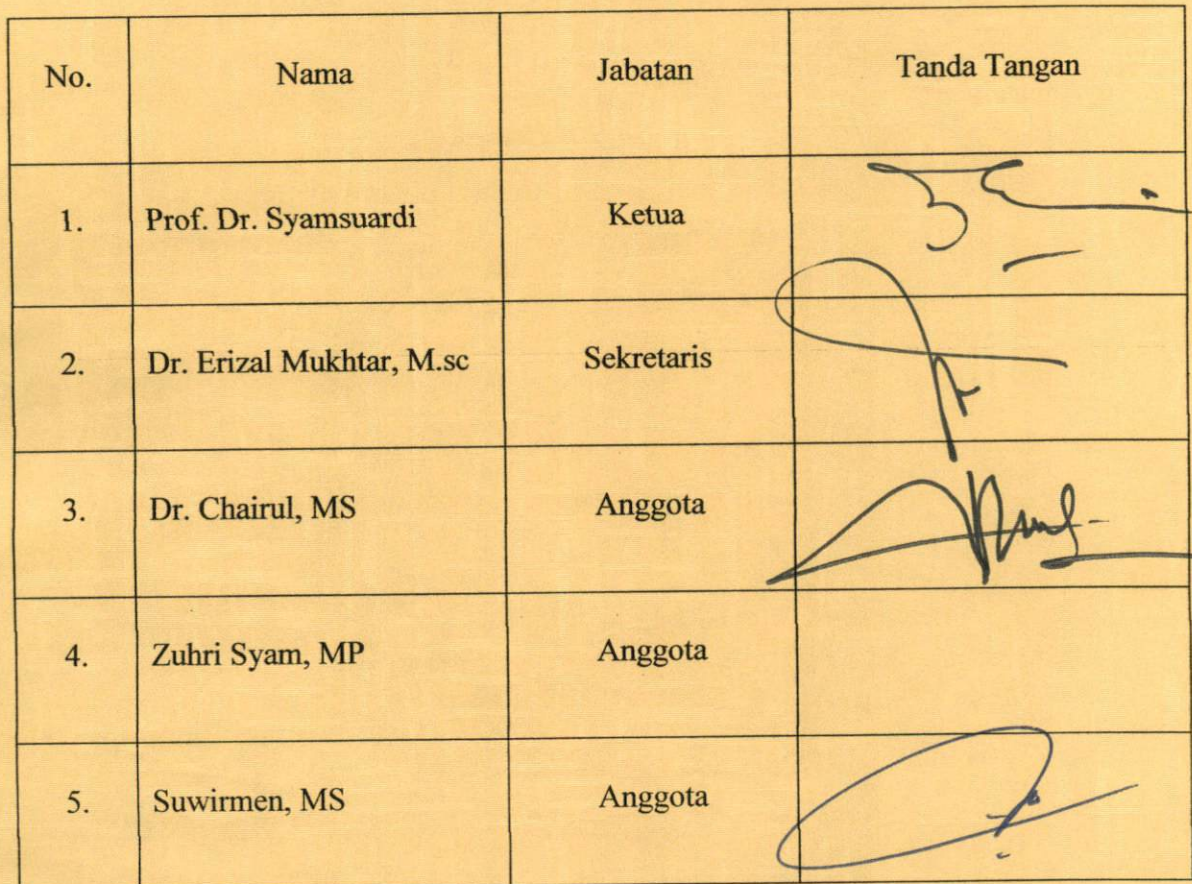 No. Nama Jabatan Tanda Tangan
1. Prof. Dr. Syamsuardi Ketua
2. Dr. Erizal Mukhtar, M.sc Sekretaris
3. Dr. Chairul, MS Anggota
4. Zuhri Syam, MP Anggota
5. Suwirmen, MS Anggota